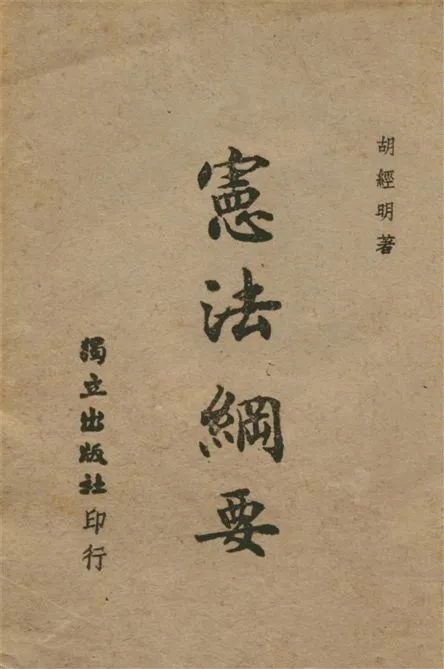 胡經明著
憲法綱要
獨立出版社印行